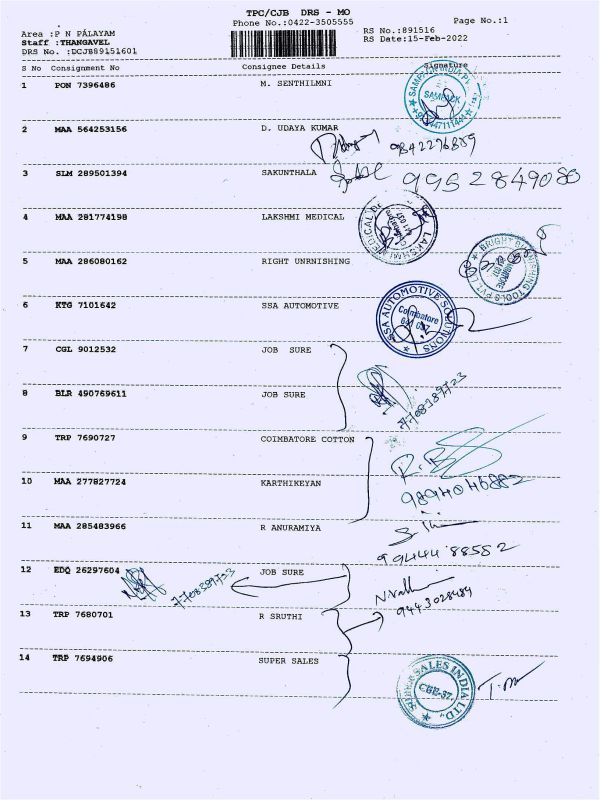 TPC/CJB DRS - MO
Phone No.:0422-3505555 Page No.:1
Area :P N PALAYAM RS No.:891516
Staff :THANGAVEL RS Date:15-Feb-2022
DRS No. :DCJB89151601
S No Consignment No Consignee Details Signature
1 PON 7396486 M. SENTHILMNI
SAMPACK
2 MAA 564253156 D. UDAYA KUMAR 9842276859
3 SLM 289501394 SAKUNTHALA 9952849080
4 MAA 281774198 LAKSHMI MEDICAL
5 MAA 286080162 RIGHT UNRNISHING
6 KTG 7101642 SSA AUTOMOTIVE
SSA AUTOMOTIVE SOLUTIONS
Coimbatore
7 CGL 9012532 JOB SURE
8 BLR 490769611 JOB SURE 7708389723
9 TRP 7690727 COIMBATORE COTTON
10 MAA 277827724 KARTHIKEYAN
11 MAA 285483966 R ANURAMIYA 99444 88552
12 EDQ 26297604 7708389723 JOB SURE
9443028489
13 TRP 7680701 R SRUTHI
14 TRP 7694906 SUPER SALES
SUPER SALES INDIA LTD.,
CBE-37.